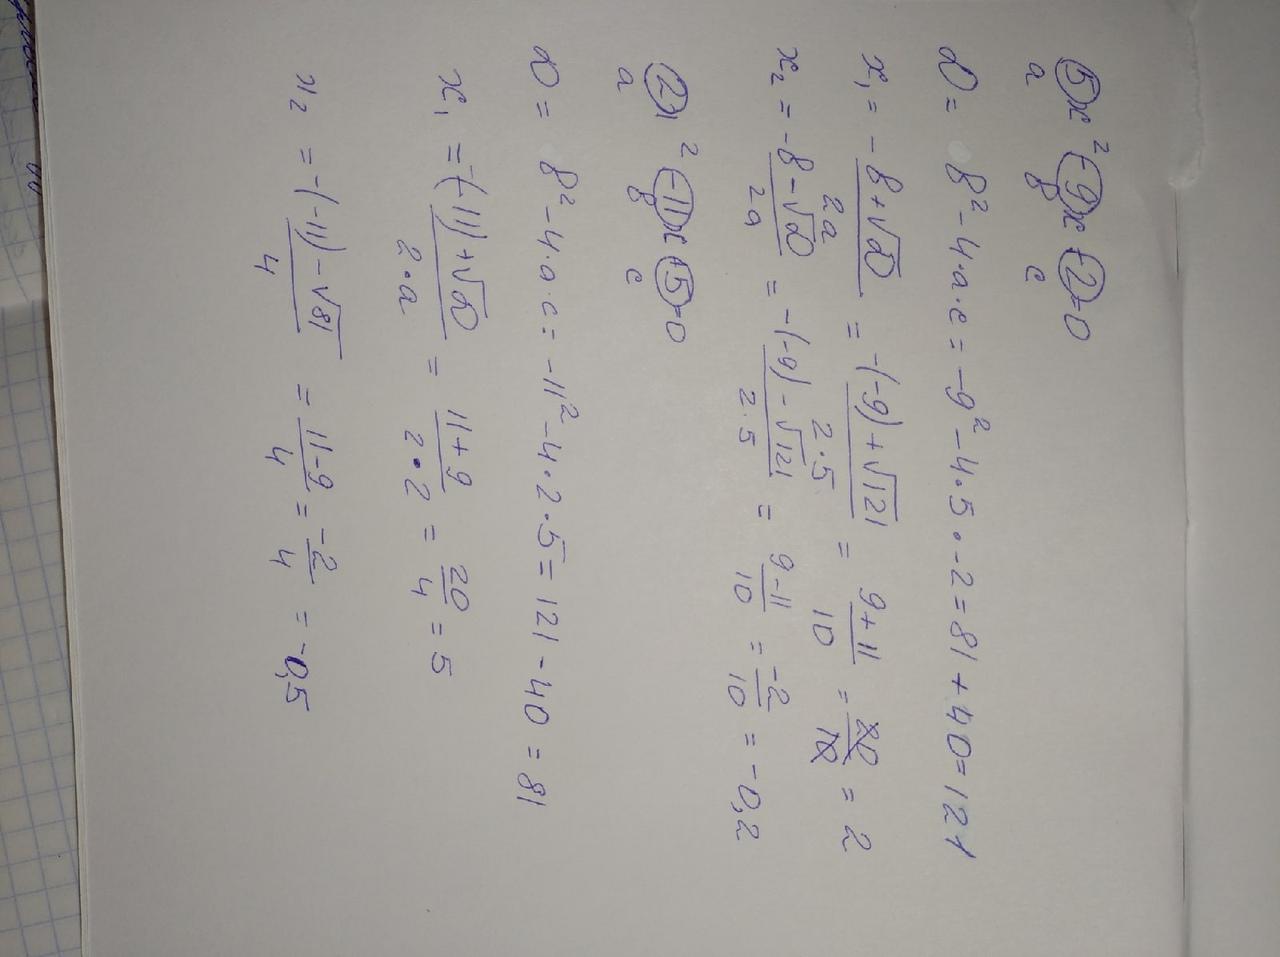 5x² -9x -2=0
a в c
D = в² - 4·a·c = -9² - 4·5·-2 = 81 + 40 = 121
x₁ = -в+√D / 2a = -(-9)+√121 / 2·5 = 9+11 / 10 = 20 / 10 = 2
x₂ = -в-√D / 2a = -(-9)-√121 / 2·5 = 9-11 / 10 = -2 / 10 = -0,2
2x² -11x +5=0
a в c
D = в² - 4·a·c = -11² - 4·2·5 = 121 - 40 = 81
x₁ = -(-11)+√D / 2·a = 11+9 / 2·2 = 20 / 4 = 5
x₂ = -(-11)-√81 / 4 = 11-9 / 4 = -2 / 4 = -0,5